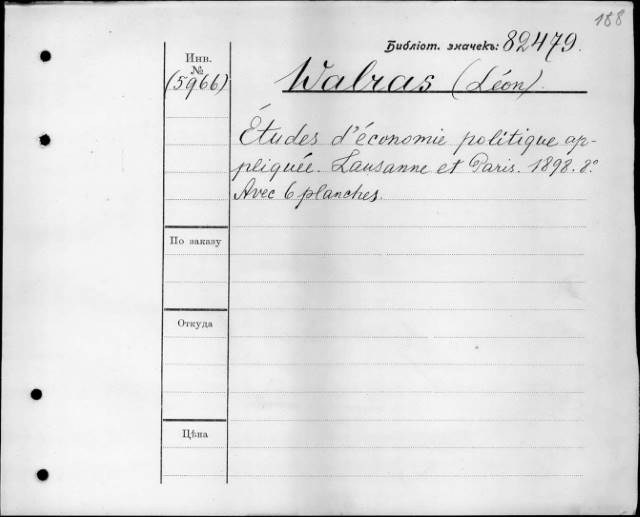 188
Библіот. значекъ: 82479.
Инв.
№
(5966)
Walras (Léon).
Études d'économie politique ap-
pliquée. Lausanne et Paris. 1898. 8°
Avec 6 planches.
По заказу
Откуда
Цѣна